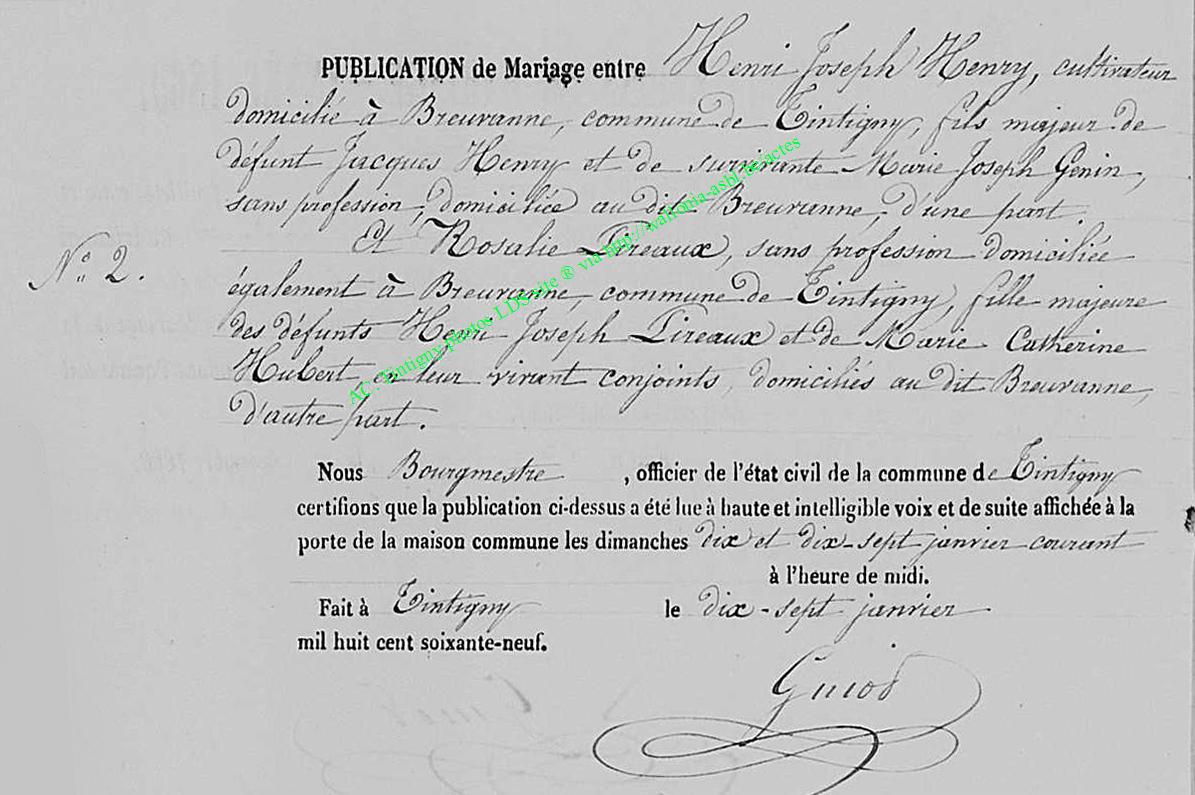 PUBLICATION de Mariage entre Henri Joseph Henry, cultivateur
domicilié à Breuvanne, commune de Tintigny, fils majeur de
défunt Jacques Henry et de survivante Marie Joseph Genin,
sans profession, domiciliée au dit Breuvanne, d'une part.
Et Rosalie Pireaux, sans profession domiciliée
N° 2.
également à Breuvanne, commune de Tintigny, fille majeure
des défunts Henri Joseph Pireaux et de Marie Catherine
Hubert, en leur vivant conjoints, domiciliés au dit Breuvanne,
d'autre part.
Nous Bourgmestre, officier de l'état civil de la commune de Tintigny
certifions que la publication ci-dessus a été lue à haute et intelligible voix et de suite affichée à la
porte de la maison commune les dimanches dix et dix-sept janvier courant
à l'heure de midi.
Fait à Tintigny le dix-sept janvier
mil huit cent soixante-neuf.
Guiot
AC. Tintigny photos LDS site ® via http://wallonia-asbl.be/actes